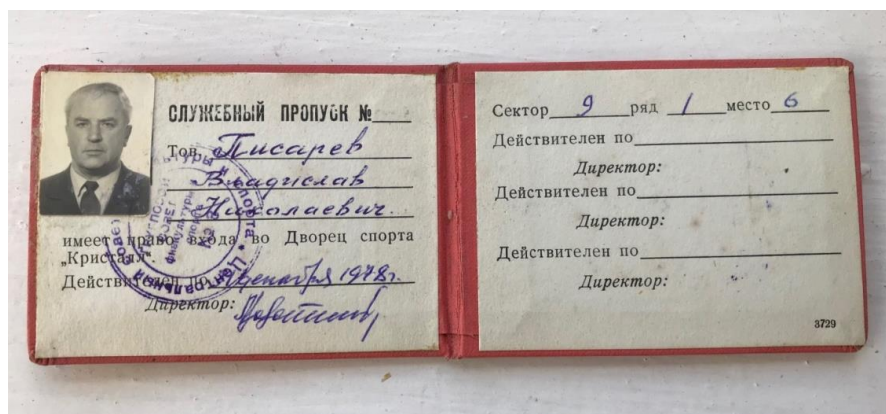 СЛУЖЕБНЫЙ ПРОПУСК №
Тов. Писарев
Владислав
Николаевич.
имеет право входа во Дворец спорта
„Кристалл".
Действителен по декабря 1978г.
Директор:
Сектор 9 ряд 1 место 6
Действителен по
Директор:
Действителен по
Директор:
Действителен по
Директор:
3729